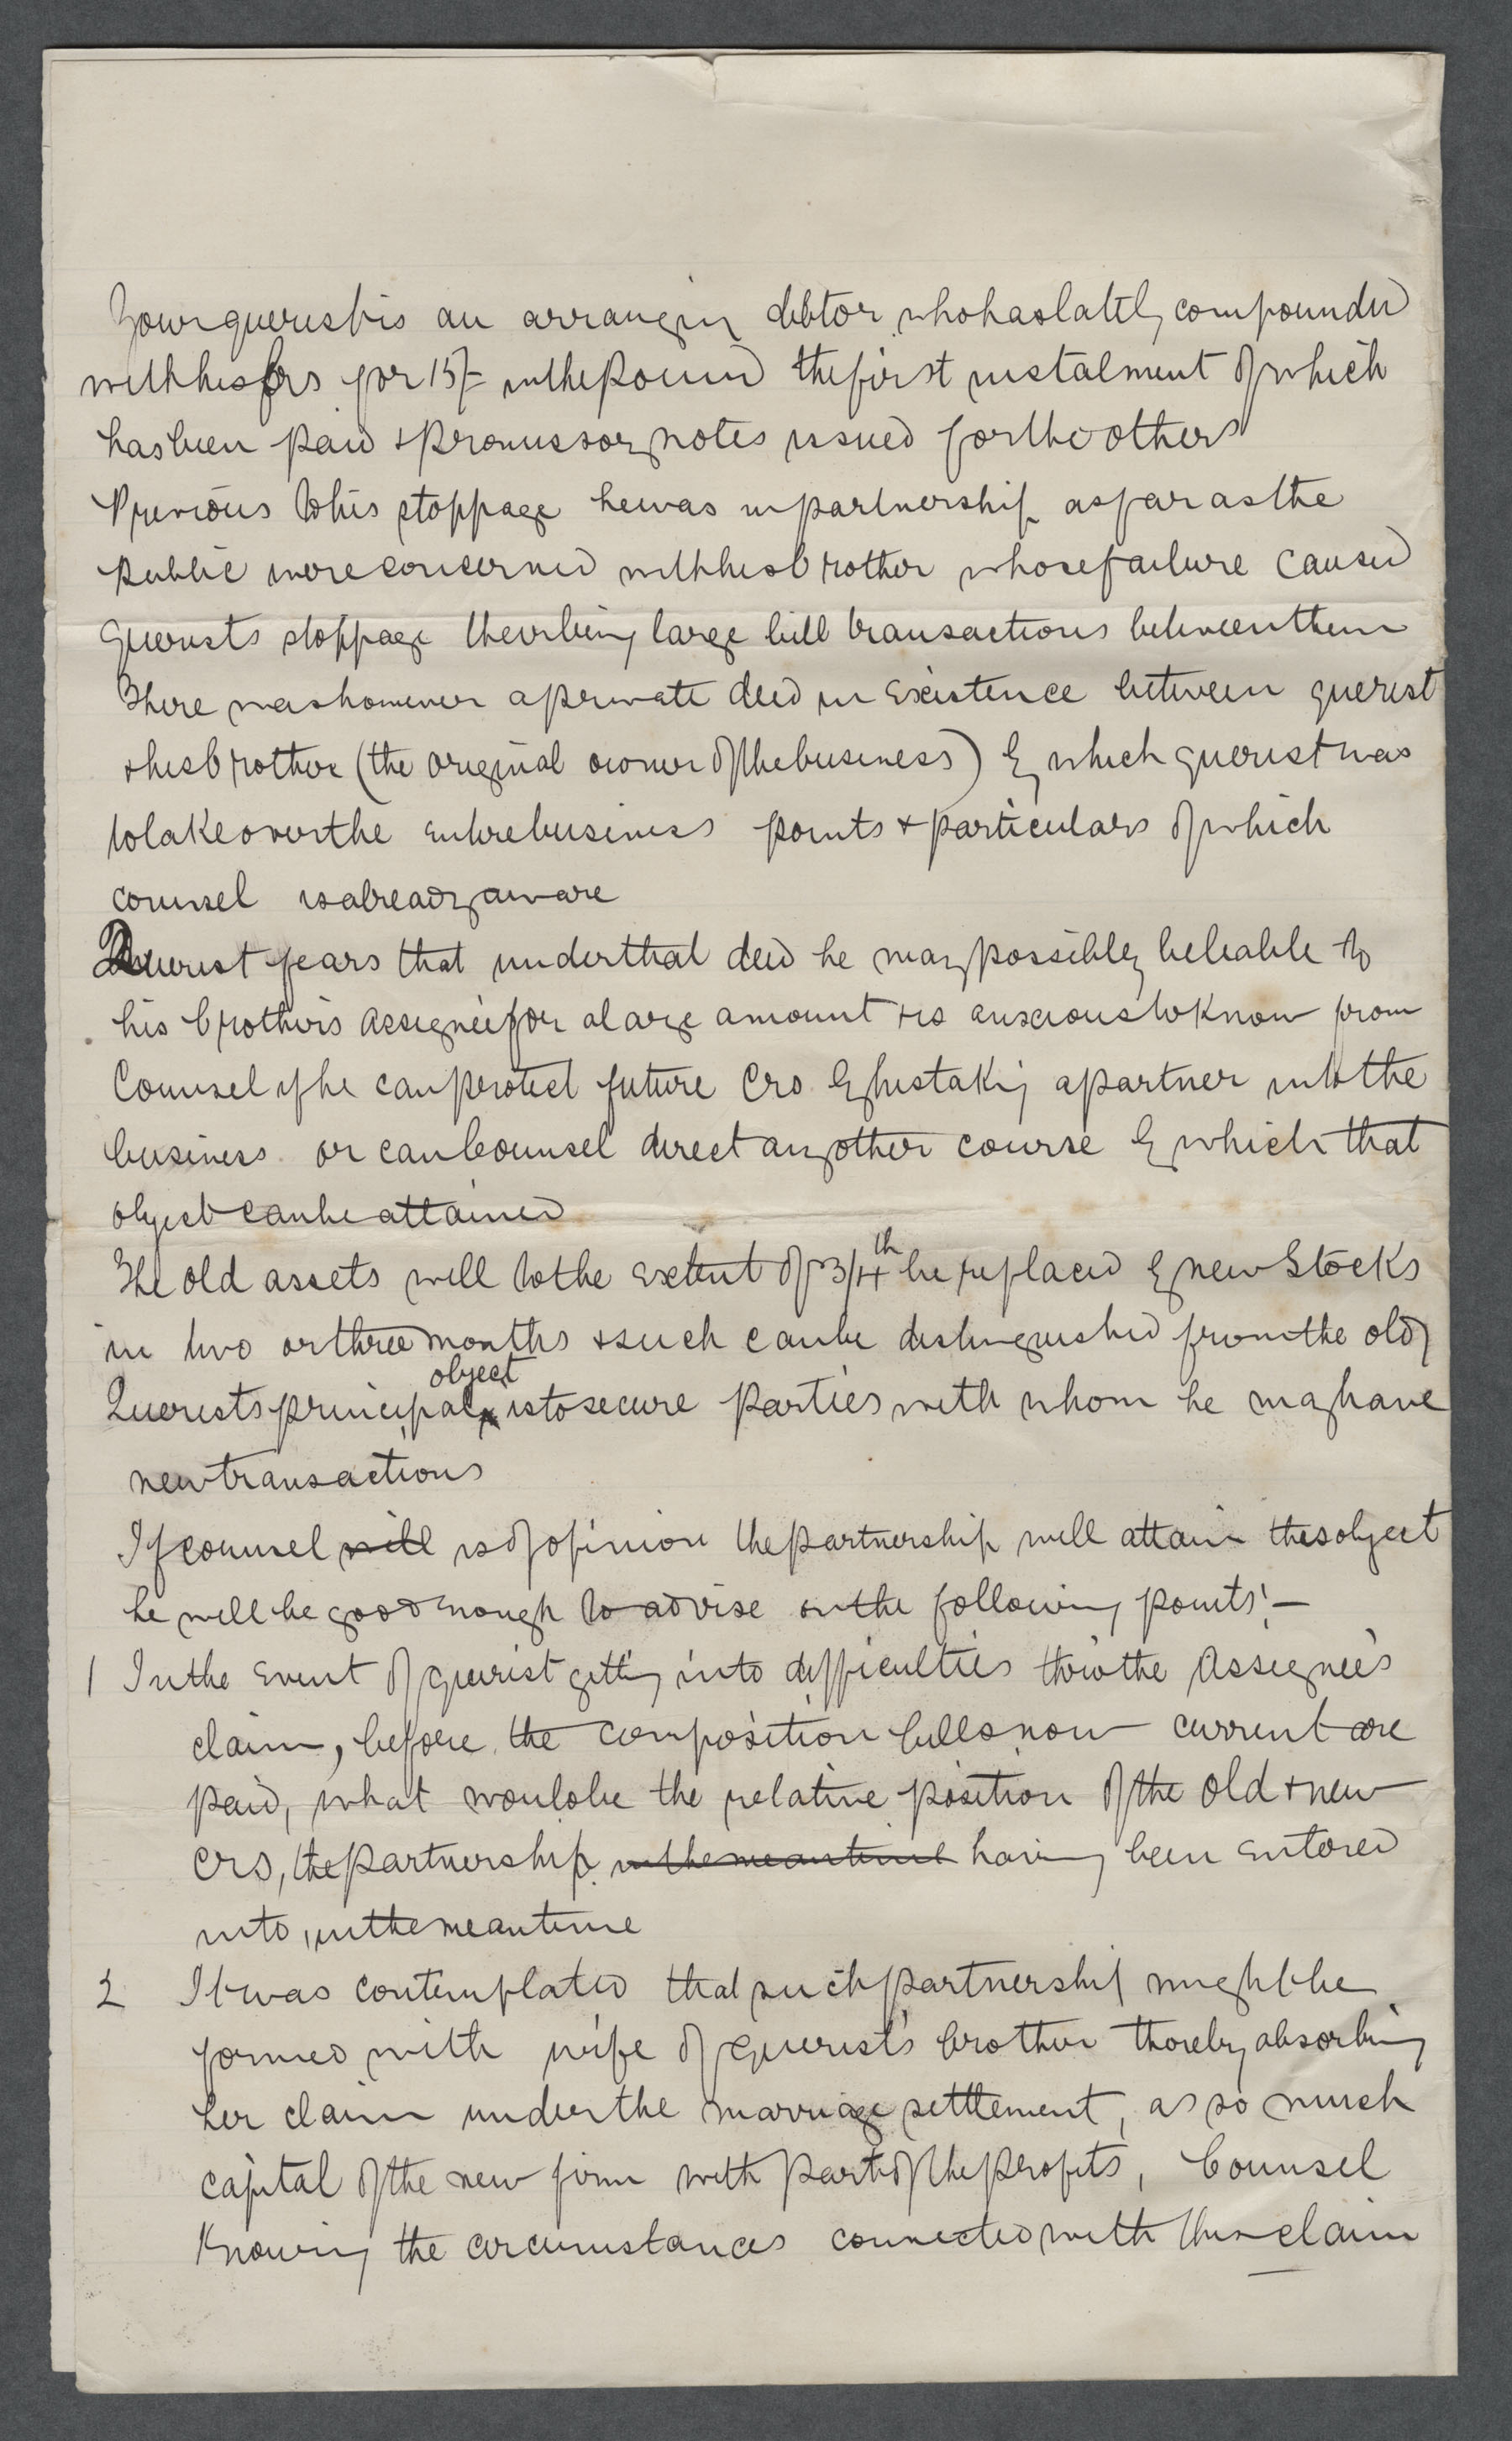 Your querist is an arranging debtor who has lately compounded
with his Crs for 15/- in the Pound the first instalment of which
has been paid & promissory notes issued for the others
Previous to his stoppage he was in partnership as far as the
public were concerned with his brother whose failure caused
Querists stoppage their being large bill transactions between them
There was however a private deed in existence between querist
& his brother (the original owner of the business) by which querist was
to take over the entire business points & particulars of which
counsel is already aware
Querist fears that under that deed he may possibly be liable to
his brothers assignee for a large amount & is anxious to know from
Counsel if he can protect future Crs by his taking a partner into the
business or can Counsel direct any other course by which that
object can be attained
The old assets will to the extent of 3/4th be replaced by new Stocks
in two or three months & such can be distinguished from the old
Querists principal object is to secure parties with whom he may have
new transactions
If counsel will is of opinion the partnership will attain this object
he will be good enough to advise on the following points:-
1 In the Event of querist getting into difficulties thro the Assignee's
claim, before the composition bills now current are
paid, what would be the relative position of the old & new
Crs, the partnership in the meantime having been entered
into, in the meantime
2 It was contemplated that such partnership might be
formed with wife of Querist's brother thereby absorbing
her claim under the marriage settlement, as so much
capital of the new firm with part of the profits, Counsel
Knowing the circumstances connected with this claim